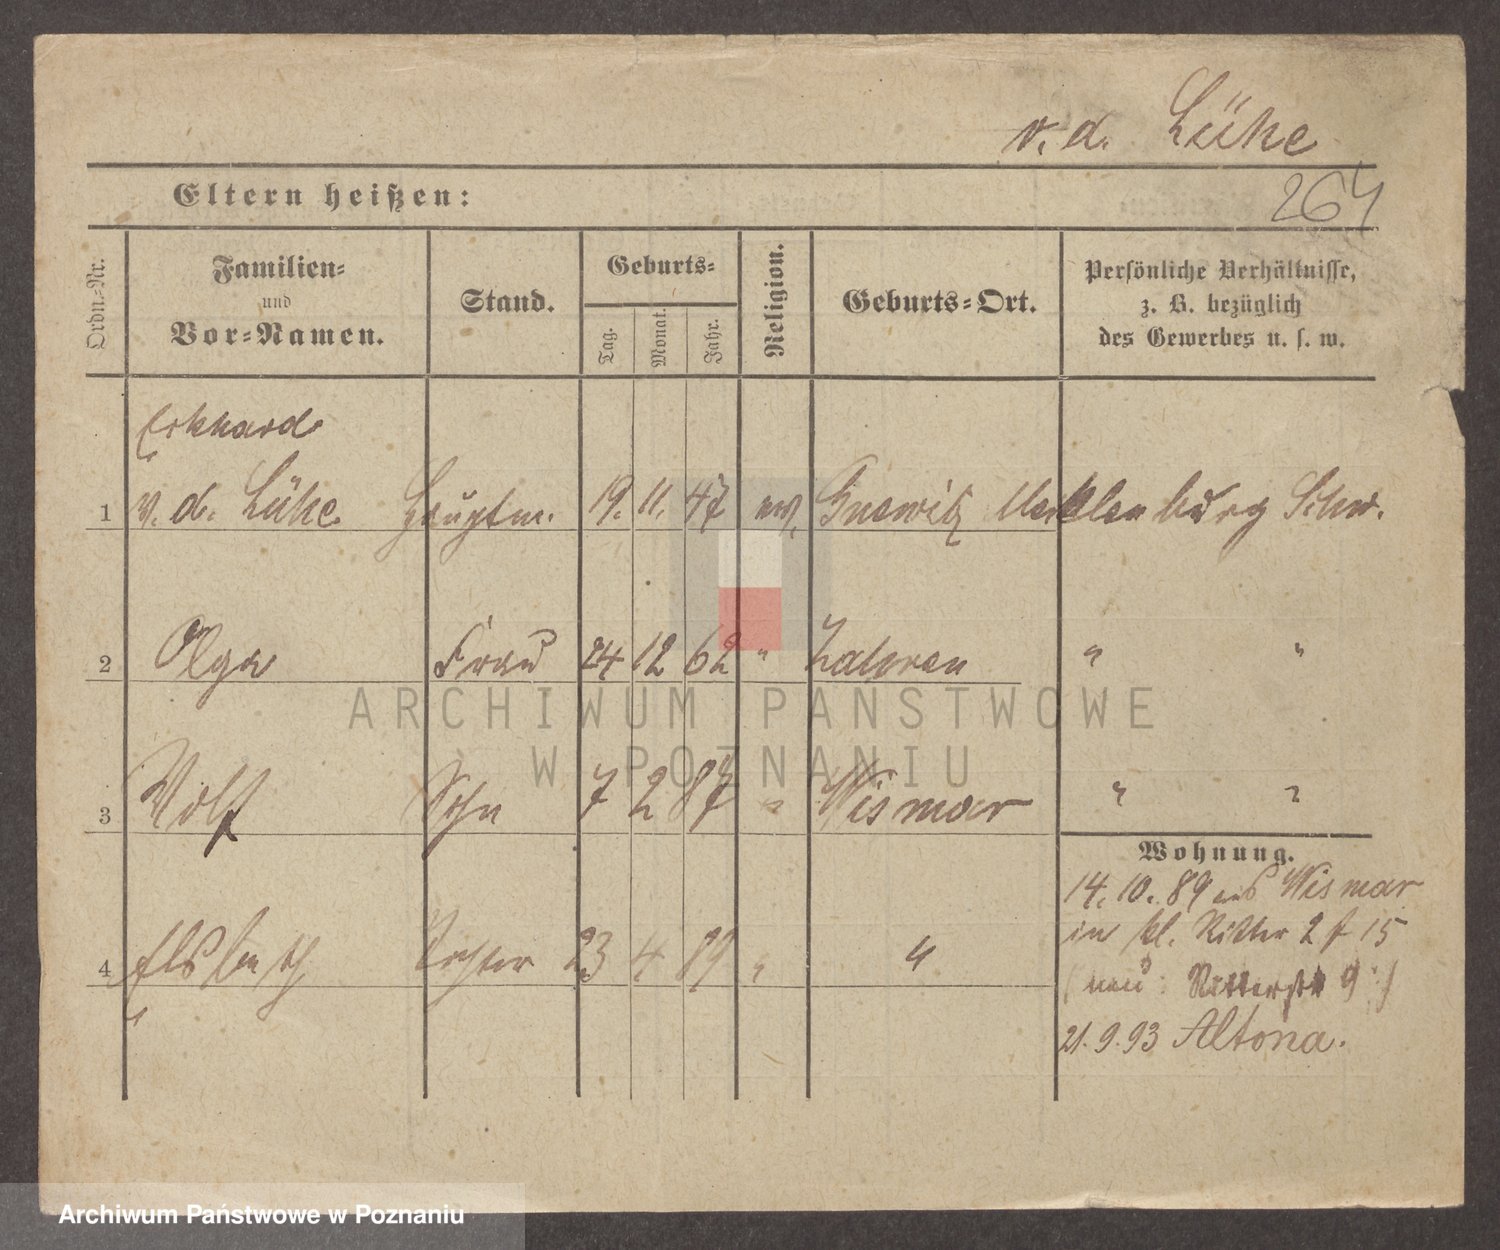 v. d. Lühe
264
Eltern heißen:
Ordn.-Nr.
Familien-
und
Vor-Namen.
Stand.
Geburts-
Tag.
Monat.
Jahr.
Religion.
Geburts-Ort.
Persönliche Verhältnisse,
z. B. bezüglich
des Gewerbes u. s. w.
Erkhard
1 v. d. Lühe Hauptm. 19. 11. 47 ev. Gnewitz Mecklenburg Schw.
2 Olga Frau 24 12 62 " " "
3 Wolf Sohn 7 2 87 " Wismar " "
4 Elsbeth Tochter 23 4 89 " "
Wohnung.
14. 10. 89 aus Wismar
in kl. Ritter 2 f 15
(neu: Ritterstr 9:)
21. 9. 93 Altona.
ARCHIWUM PAŃSTWOWE
W POZNANIU
Archiwum Państwowe w Poznaniu